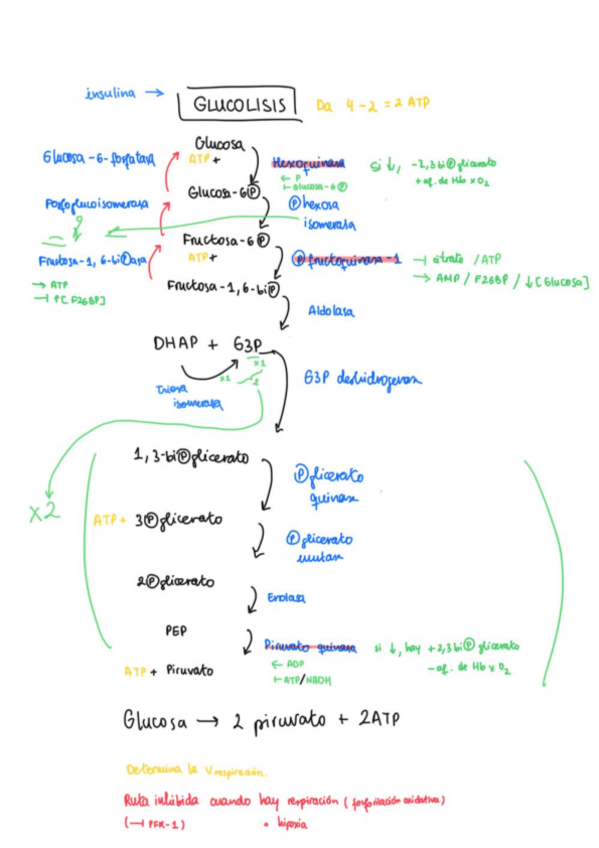 insulina →
GLUCOLISIS
Da 4-2 = 2 ATP
Glucosa
Glucosa-6-fosfatasa
ATP +
Hexoquinasa
si ↓, -2,3 bi Ⓟ glicerato
+ af. de Hb x O2
← P
⊢ Glucosa-6Ⓟ
Glucosa-6Ⓟ
Fosfoglucoisomerasa
Ⓟ hexosa
isomerasa
Fructosa-6Ⓟ
Fructosa-1,6-biⓅasa
ATP +
Ⓟ fructoquinasa-1
⊣ citrato / ATP
→ AMP / F26BP / ↓[Glucosa]
→ ATP
⊣ ↑[F26BP]
Fructosa-1,6-biⓅ
Aldolasa
DHAP + G3P
x1
x1
2
Triosa
isomerasa
G3P deshidrogenasa
1,3-biⓅglicerato
Ⓟglicerato
quinasa
x2
ATP + 3Ⓟglicerato
Ⓟglicerato
mutasa
2Ⓟglicerato
Enolasa
PEP
Piruvato quinasa
si ↓, hay +2,3 biⓅ glicerato
- af. de Hb x O2
← ADP
⊢ ATP/NADH
ATP + Piruvato
Glucosa → 2 piruvato + 2ATP
Determina la V respiración.
Ruta inhibida cuando hay respiración (fosforilación oxidativa)
(⊣ PFK-1)
• hipoxia